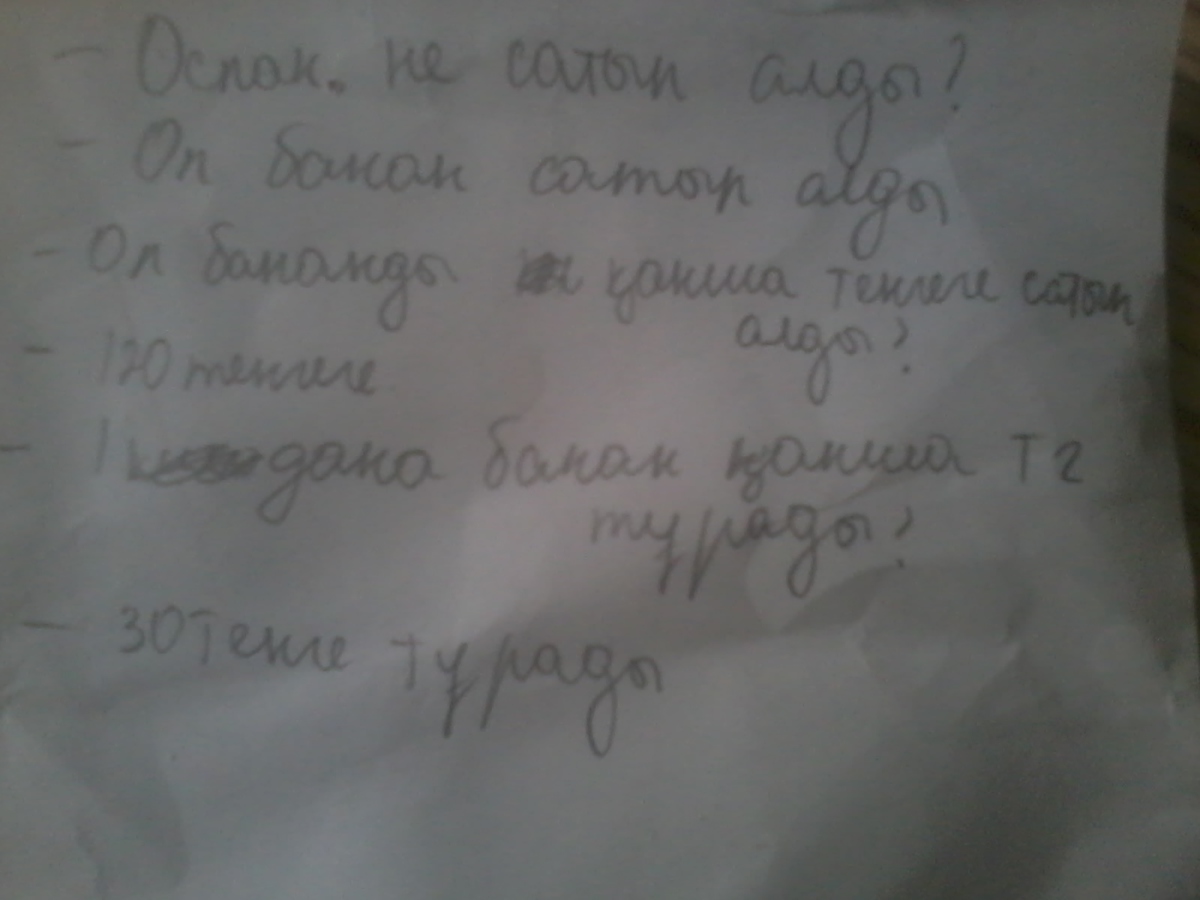 - Оспан. не сатып алды?
- Ол банан сатып алды
- Ол бананды қанша теңгеге сатып
алды?
- 120 теңгеге
- 1 дана банан қанша тг
тұрады?
- 30 теңге тұрады